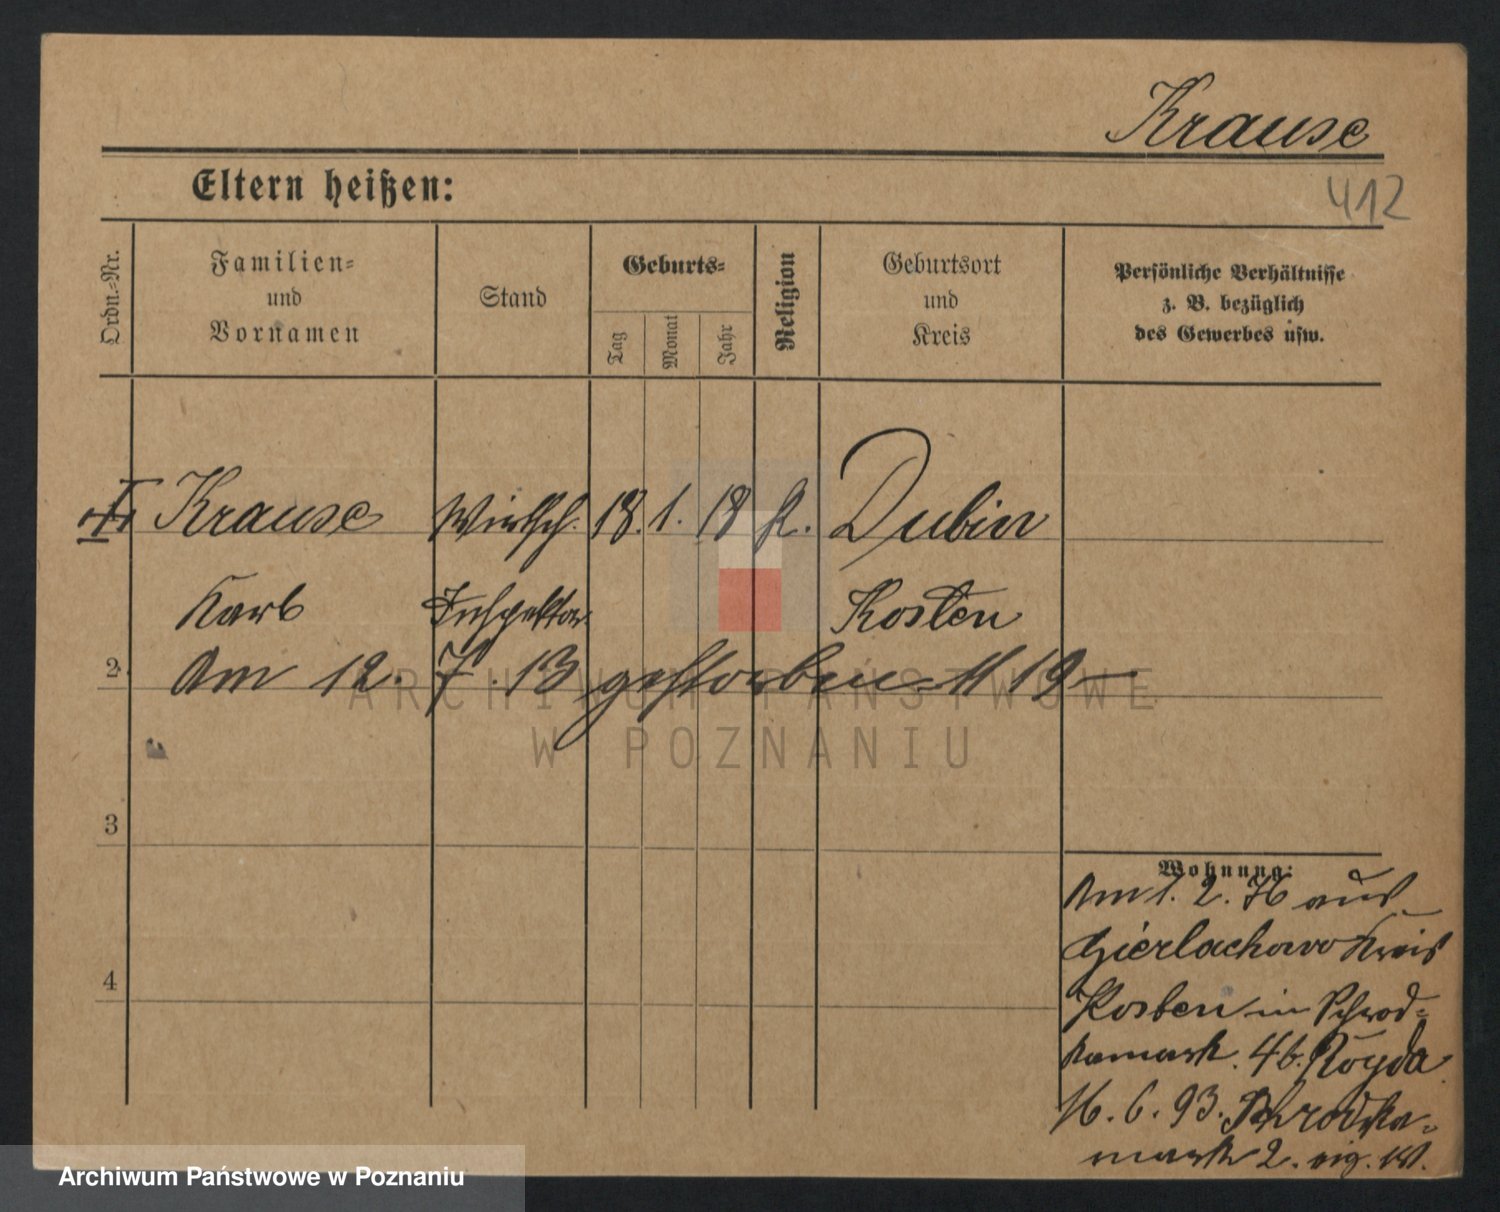 Krause
Eltern heißen:
412
Ordn.-Nr.
Familien-
und
Vornamen
Stand
Geburts-
Tag
Monat
Jahr
Religion
Geburtsort
und
Kreis
Persönliche Verhältnisse
z. B. bezüglich
des Gewerbes usw.
Krause Wirtsch. 18. 1. 18 k. Dubin
Karl Inspektor Kosten
2. Am 12. 7. 13 gestorben 19
ARCHIWUM PAŃSTWOWE
W POZNANIU
3
4
Wohnung:
Am 1. 2. 76 aus
Gierlachowo Kreis
Kosten in Schrod-
kamark. 4 b.
16. 6. 93. Schrodka-
mark 2. eig.
Archiwum Państwowe w Poznaniu